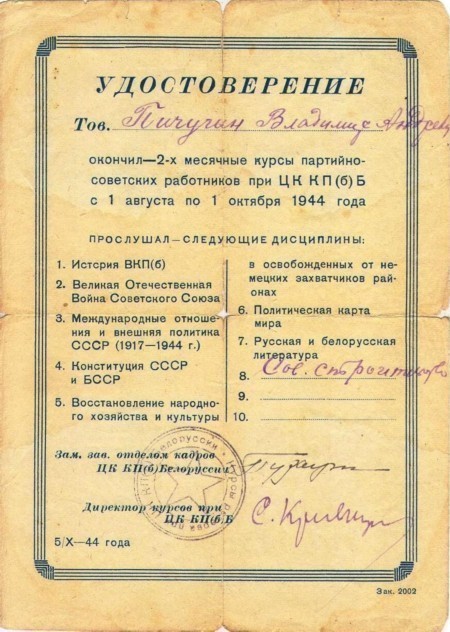 УДОСТОВЕРЕНИЕ
Тов. Пичугин Владимир Андреев
окончил—2-х месячные курсы партийно-
советских работников при ЦК КП(б)Б
с 1 августа по 1 октября 1944 года
ПРОСЛУШАЛ—СЛЕДУЮЩИЕ ДИСЦИПЛИНЫ:
1. История ВКП(б)
2. Великая Отечественная
Война Советского Союза
3. Международные отноше-
ния и внешняя политика
СССР (1917—1944 г.)
4. Конституция СССР
и БССР
5. Восстановление народно-
го хозяйства и культуры
в освобожденных от не-
мецких захватчиков рай-
онах
6. Политическая карта
мира
7. Русская и белорусская
литература
8. Сов. строительство
9.
10.
Зам. зав. отделом кадров
ЦК КП(б)Белоруссии
Директор курсов при
ЦК КП(б)Б
5/X—44 года
Зак. 2002